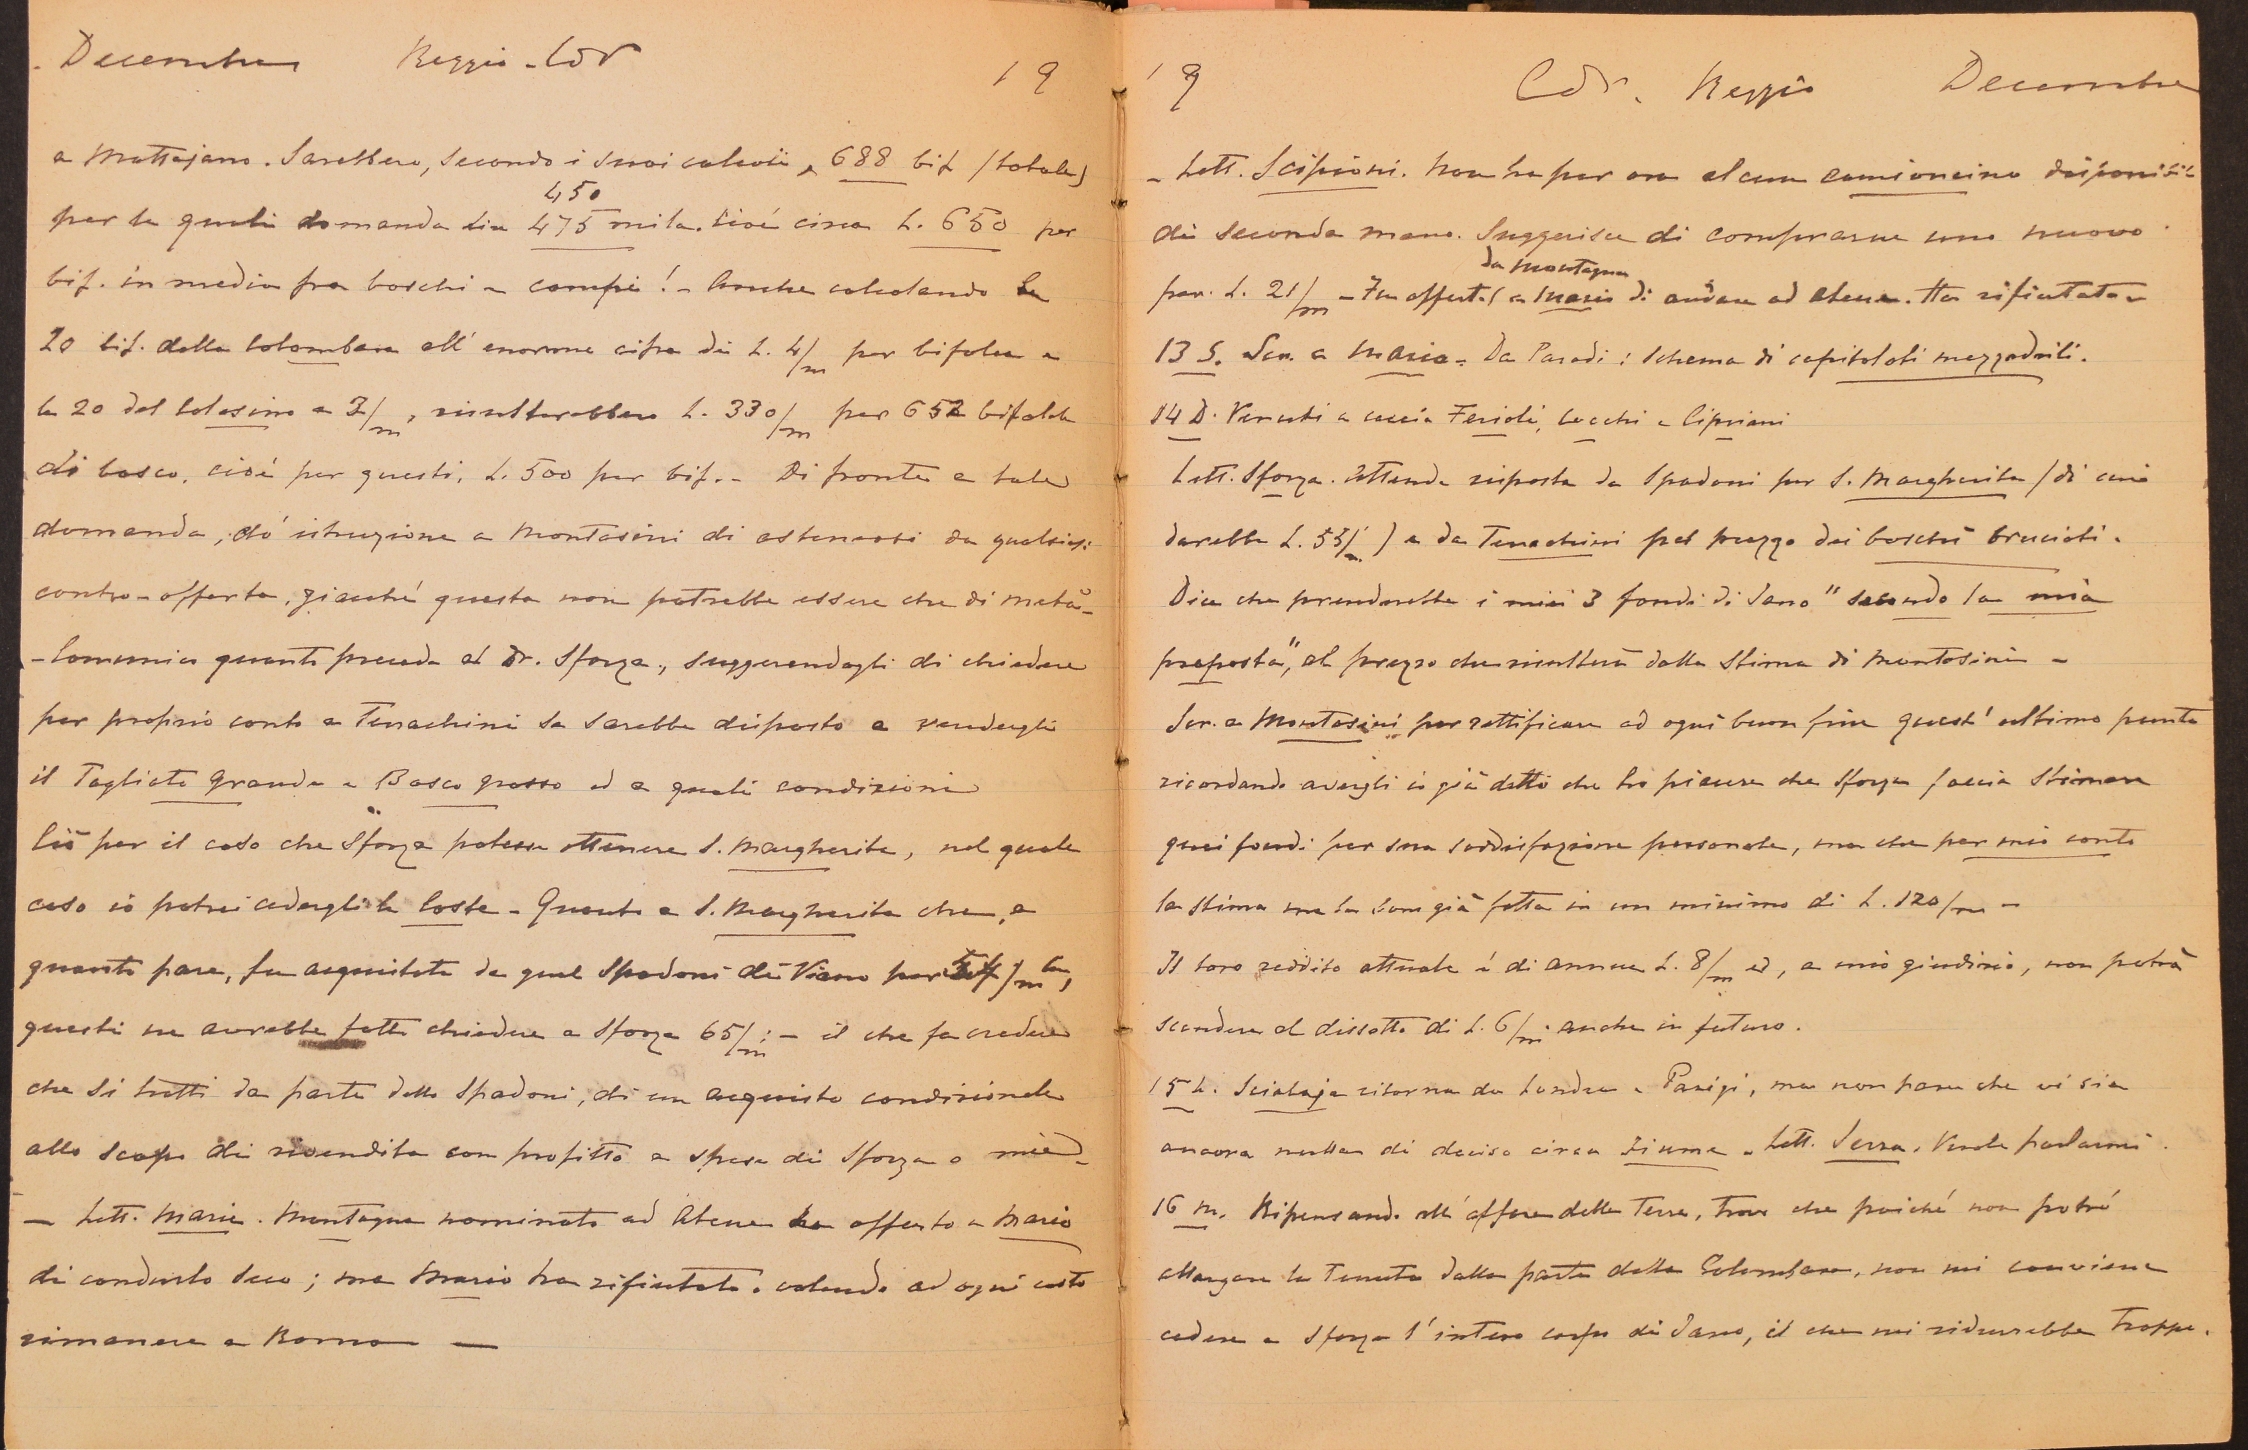 Decembre Reggio - Cdr 19
a Mattajano. Sarebbero, secondo i suoi calcoli, 688 bif. (totale)
450
per le quali domanda Lire 475 mila. Cioé circa L. 650 per
bif. in media fra boschi e campi! - Anche calcolando le
20 bif. della Colombara all' enorme cifra di L. 4/m per bifolca e
le 20 del Colesino a 3/m, risulterebbero L. 330/m per 652 bifolche
di bosco, cioé per questi, L. 500 per bif. - Di fronte a tale
domanda, dó istruzione a Montasini di astenersi da qualsiasi
contro-offerta, giacché questa non potrebbe essere che di metà -
- Comunico quanto precede al Dr. Sforza, suggerendogli di chiedere
per proprio conto a Tenachini se sarebbe disposto a vendergli
il Tagliato Grande e Bosco grosso ed a quali condizioni
Ciò per il caso che Sforza potesse ottenere S. Margherita, nel quale
caso io potrei cedergli le Coste - Quanto a S. Margherita che, a
quanto pare, fu acquistata da quel Spadoni di Viano per /m lire,
questi ne avrebbe fatto chiedere a Sforza 65/m; - il che fa credere
che si tratti da parte dello Spadoni, di un acquisto condizionale
allo scopo di rivendita con profitto a spese di Sforza o mie -
- Lett. Mario. Montagna nominato ad Atene ha offerto a Mario
di condurlo seco; ma Mario ha rifiutato, volendo ad ogni costo
rimanere a Roma -
19 Cdr. Reggio Decembre
- Lett. Scipioni. Non ha per ora alcun camioncino disponibile
di seconda mano. Suggerisce di comprarne uno nuovo
da Montagna
per L. 21/m - Fu offerto a Mario di andare ad Atene. Ha rifiutato -
13 S. Scr. a Mario - Da Parodi: Schema di capitolati mezzadrili.
14 D. Venuti a caccia Ferioli, Cocchi e Cipriani
Lett. Sforza. Attende risposta da Spadoni per S. Margherita (di cui
darebbe L. 55/m) e da Tenachini pel prezzo dei boschi bruciati.
Dice che prenderebbe i miei 3 fondi di Sano "secondo la mia
proposta", al prezzo che risulterà dalla stima di Montasini -
Scr. a Montasini per rettificare ad ogni buon fine quest' ultimo punto
ricordando avergli io già detto che ho piacere che Sforza faccia stimare
quei fondi per sua soddisfazione personale, ma che per mio conto
la stima me la son già fatta in un minimo di L. 120/m -
Il loro reddito attuale é di annue L. 8/m ed, a mio giudizio, non potrà
scendere al dissotto di L. 6/m anche in futuro.
15 L. Scialoja ritorna da Londra e Parigi, ma non pare che vi sia
ancora nulla di deciso circa Fiume - Lett. Serra. Vuole parlarmi.
16 M. Ripensando all' affare delle Terre, trovo che poiché non potró
allargare la Tenuta dalla parte della Colombara, non mi conviene
cedere a Sforza l' intero corpo di Sano, il che mi ridurrebbe troppo.